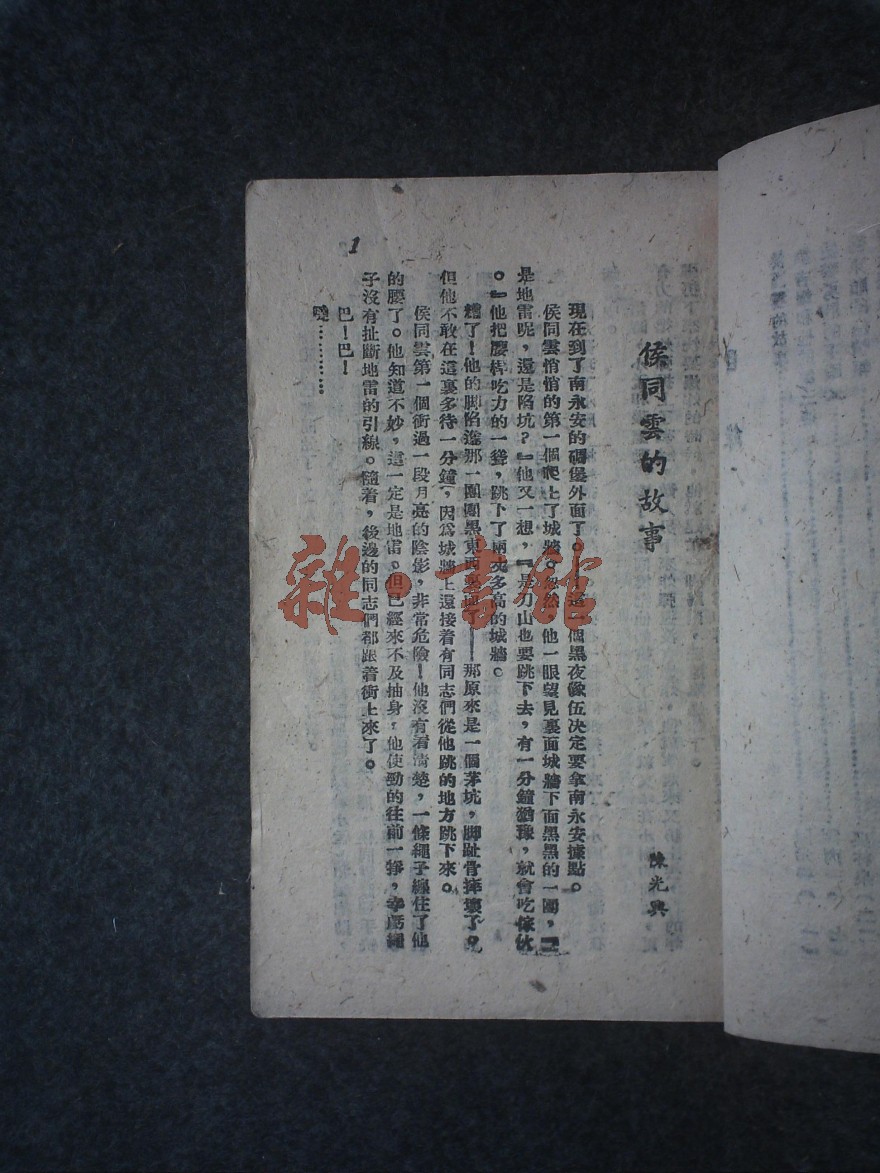 侯同雲的故事
陳光興
現在到了南永安的碉堡外面了。這一個黑夜隊伍決定要拿南永安據點。
侯同雲悄悄的第一個爬上了城牆。忽然,他一眼望見裏面城牆下面黑黑的一團,『
是地雷呢,還是陷坑?』他又一想,『是刀山也要跳下去,有一分鐘猶豫,就會吃傢伙
。』他把腰桿吃力的一聳,跳下了兩丈多高的城牆。
糟了!他的脚陷進那一團團黑東西裏面了——那原來是一個茅坑,脚趾骨摔壞了。
但他不敢在這裏多待一分鐘,因爲城牆上還接着有同志們從他跳的地方跳下來。
侯同雲第一個衝過一段月亮的陰影,非常危險!他沒有看清楚,一條繩子纏住了他
的腰了。他知道不妙,這一定是地雷。但已經來不及抽身,他使勁的往前一掙,幸虧繩
子沒有扯斷地雷的引線。隨着,後邊的同志們都跟着衝上來了。
巴!巴!
噠…………
1
雜·書館